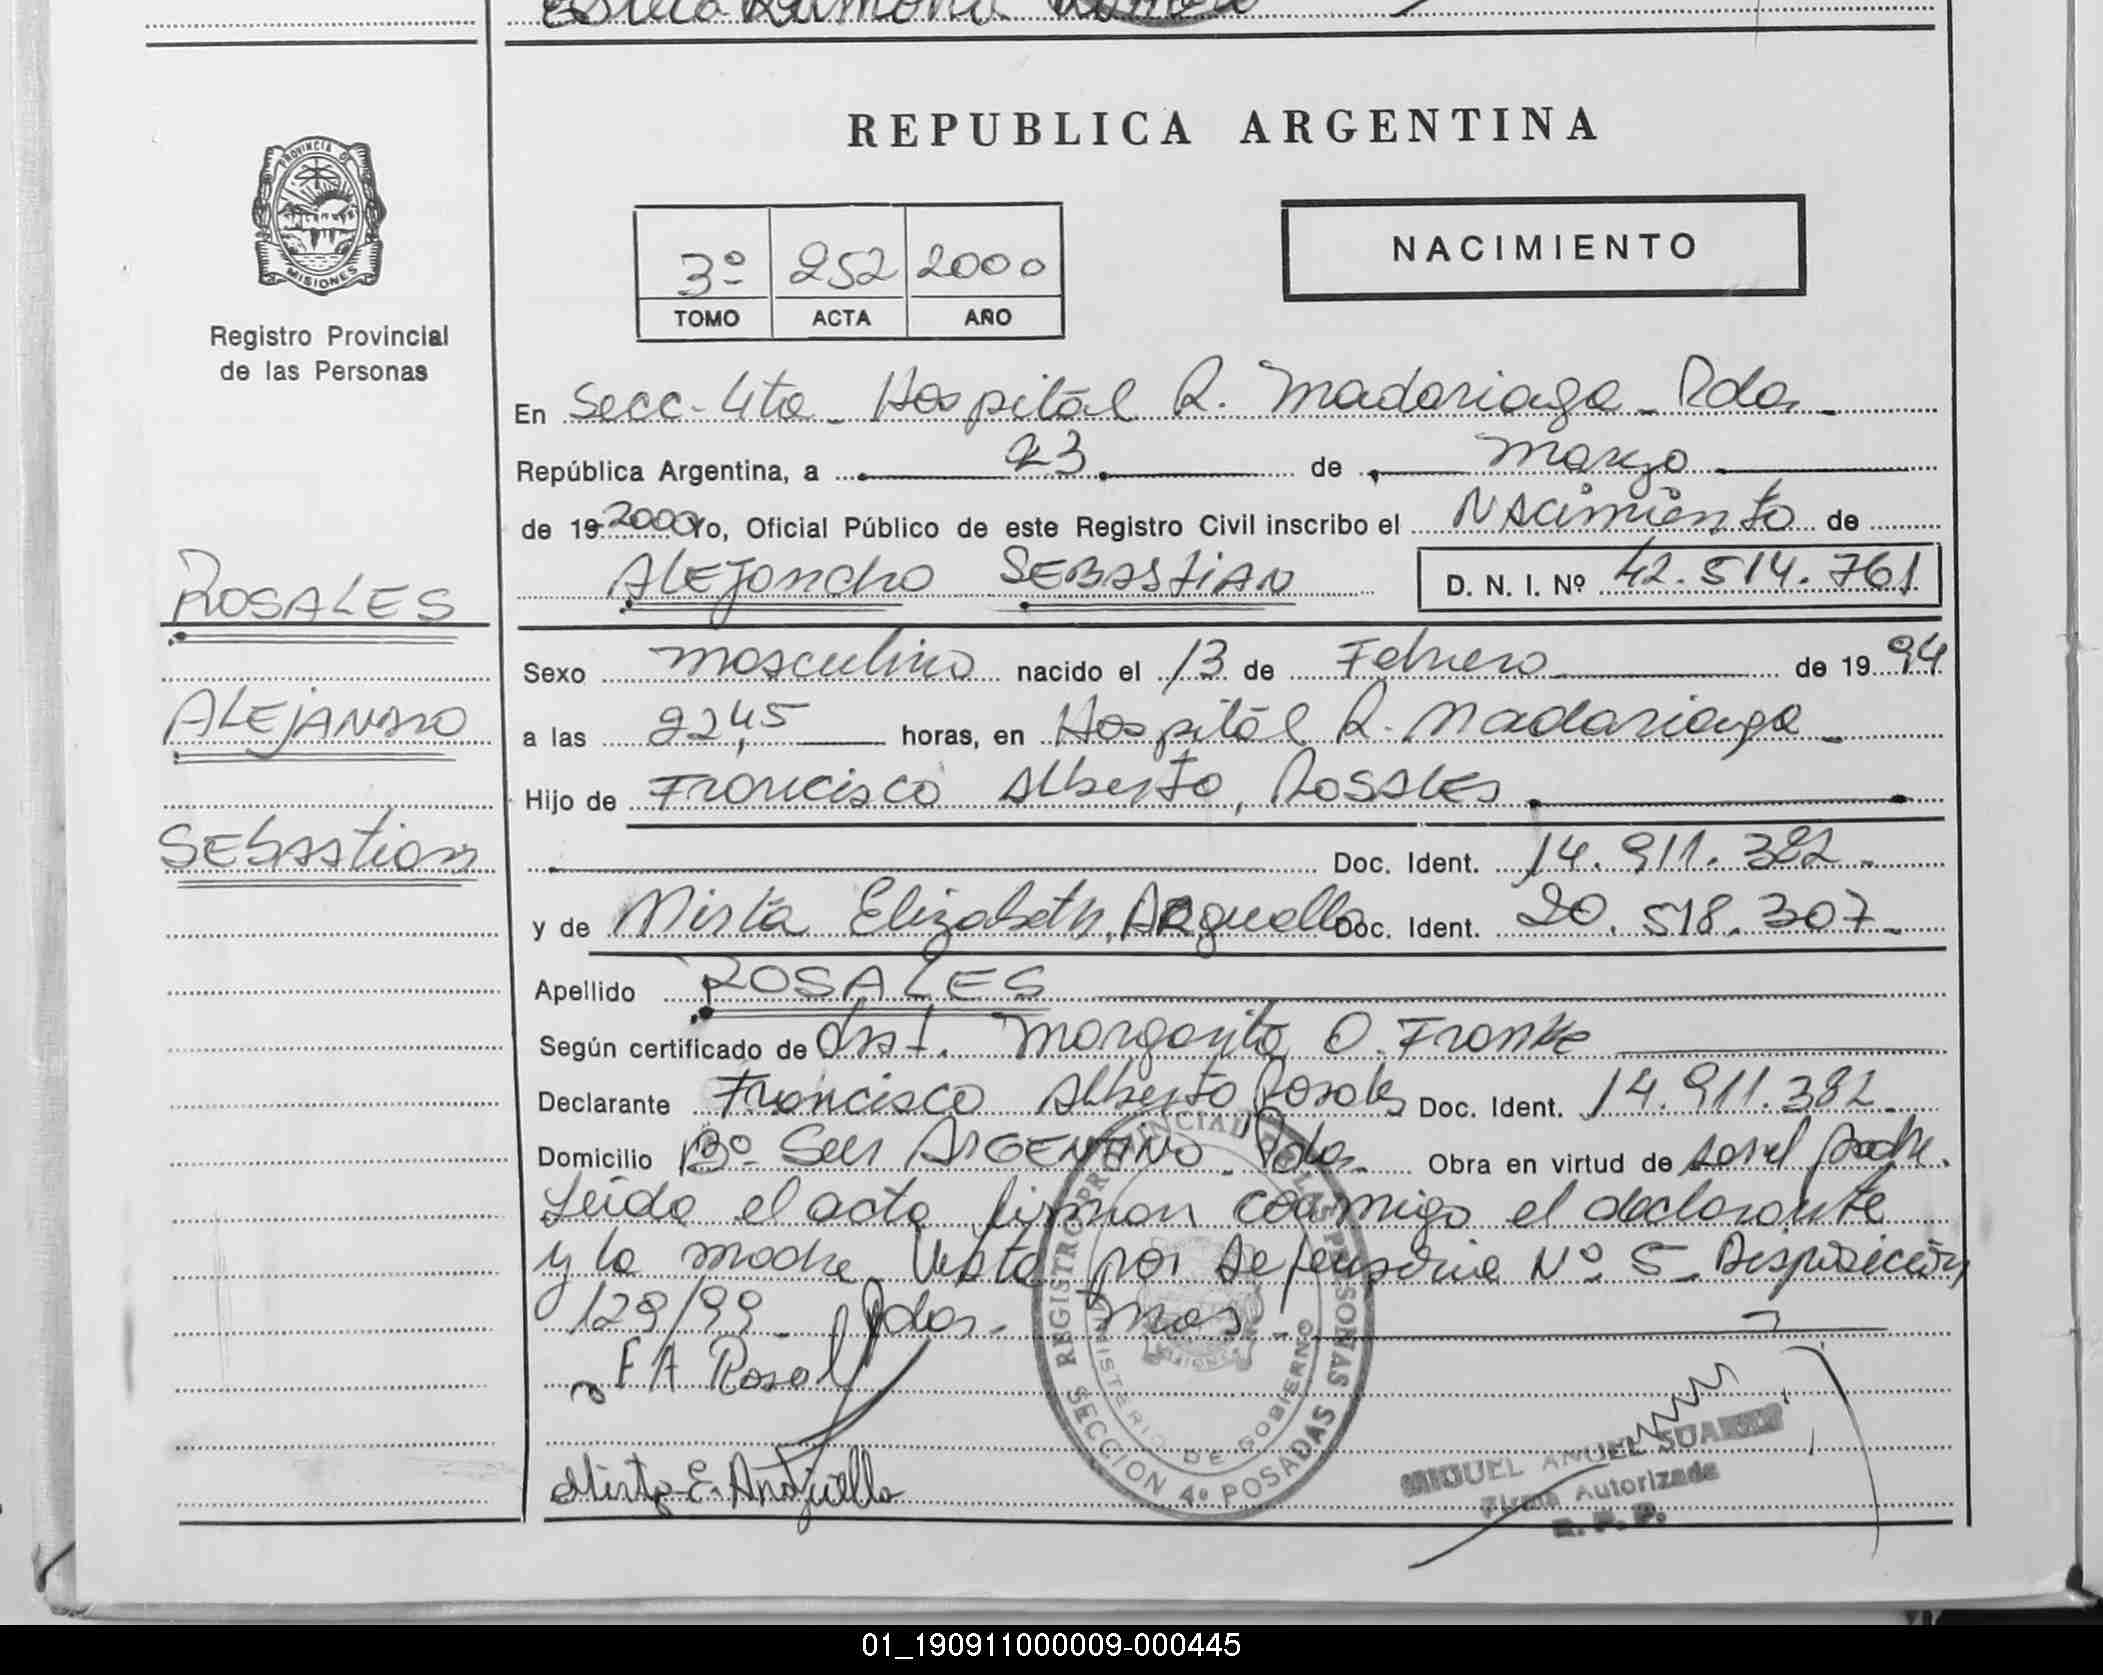 REPUBLICA ARGENTINA
PROVINCIA DE
MISIONES
Registro Provincial
de las Personas
NACIMIENTO
3º 252 2000
TOMO ACTA AÑO
En Secc. 4ta - Hospital R. Madariaga - Pdas -
República Argentina, a 23 de Marzo
de 19 2000 Yo, Oficial Público de este Registro Civil inscribo el Nacimiento de
Alejandro Sebastian D. N. I. Nº 42.514.761
ROSALES
ALEJANDRO
Sebastian
Sexo masculino nacido el 13 de Febrero de 19 94
a las 22,45 horas, en Hospital R. Madariaga -
Hijo de Francisco Alberto, Rosales
Doc. Ident. 14.911.382 -
y de Mirta Elizabeth, Arguello Doc. Ident. 20.518.307 -
Apellido ROSALES
Según certificado de Obst. Margarita O. Franke
Declarante Francisco Alberto Rosales Doc. Ident. 14.911.382 -
Domicilio Bº Sesq ARGENTINO - Pdas - Obra en virtud de ser el padre.
Leída el acta firman conmigo el declarante
y la madre Visto por Defensoria Nº 5 - Disposición
129/99 - Pdas - Mnes.
F A Rosal
Mirta E. Arguello
REGISTRO PROVINCIAL DE LAS PERSONAS
MINISTERIO DE GOBIERNO
SECCION 4º POSADAS
MIGUEL ANGEL SUAREZ
Firma Autorizada
R. P. P.
01_190911000009-000445